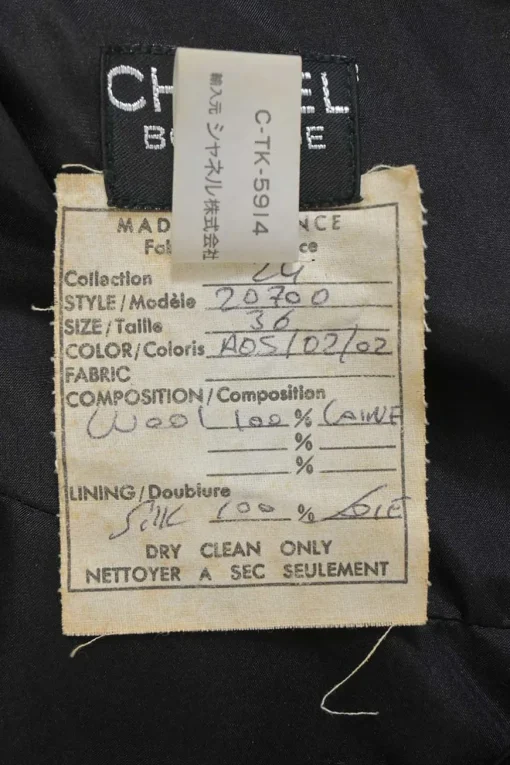 CH EL
BO E
C-TK-5914
輸入元 シャネル株式会社
MAD NCE
Fa ce
Collection 24
STYLE/Modèle 20700
SIZE/Taille 36
COLOR/Coloris A05/02/02
FABRIC
COMPOSITION/Composition
WOOL 100 % LAINE
%
%
LINING/Doublure
Silk 100 % SOIE
DRY CLEAN ONLY
NETTOYER A SEC SEULEMENT